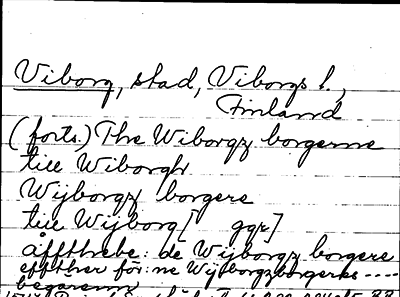 Viborg, stad, Viborgs l.,
Finland
(forts.) The Wiborgz borgerne
till Wiborgh
Wijborgz borgere
till Wijborg[ ggr]
åffthebe: de Wijborgz borgere
effther för:ne Wijborgzborgerès ----
begärenn